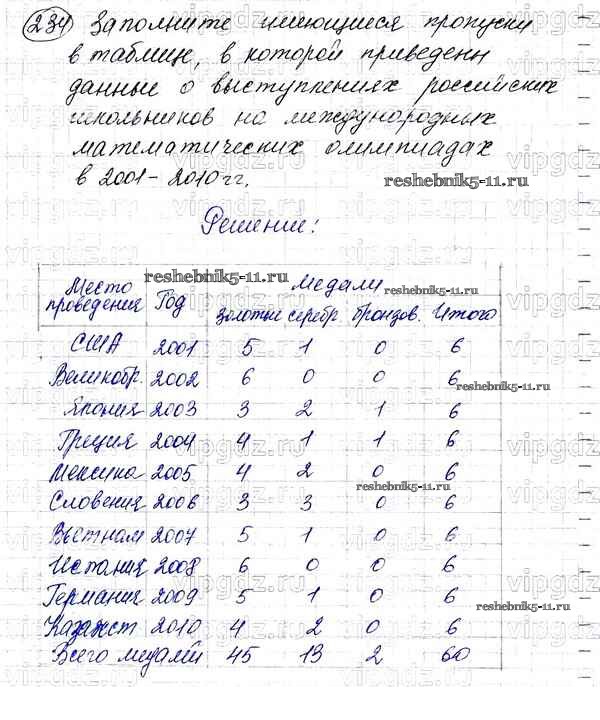 234 Заполните имеющиеся пропуски
в таблице, в которой приведены
данные о выступлениях российских
школьников на международных
математических олимпиадах
в 2001-2010 гг.
reshebnik5-11.ru
Решение:
reshebnik5-11.ru
Место проведения Год Медали
reshebnik5-11.ru
золотые серебр. бронзов. Итого
США 2001 5 1 0 6
Великобр. 2002 6 0 0 6
reshebnik5-11.ru
Япония 2003 3 2 1 6
Греция 2004 4 1 1 6
Мексика 2005 4 2 0 6
reshebnik5-11.ru
Словения 2006 3 3 0 6
Вьетнам 2007 5 1 0 6
Испания 2008 6 0 0 6
Германия 2009 5 1 0 6
reshebnik5-11.ru
Казахст 2010 4 2 0 6
Всего медалй 45 13 2 60